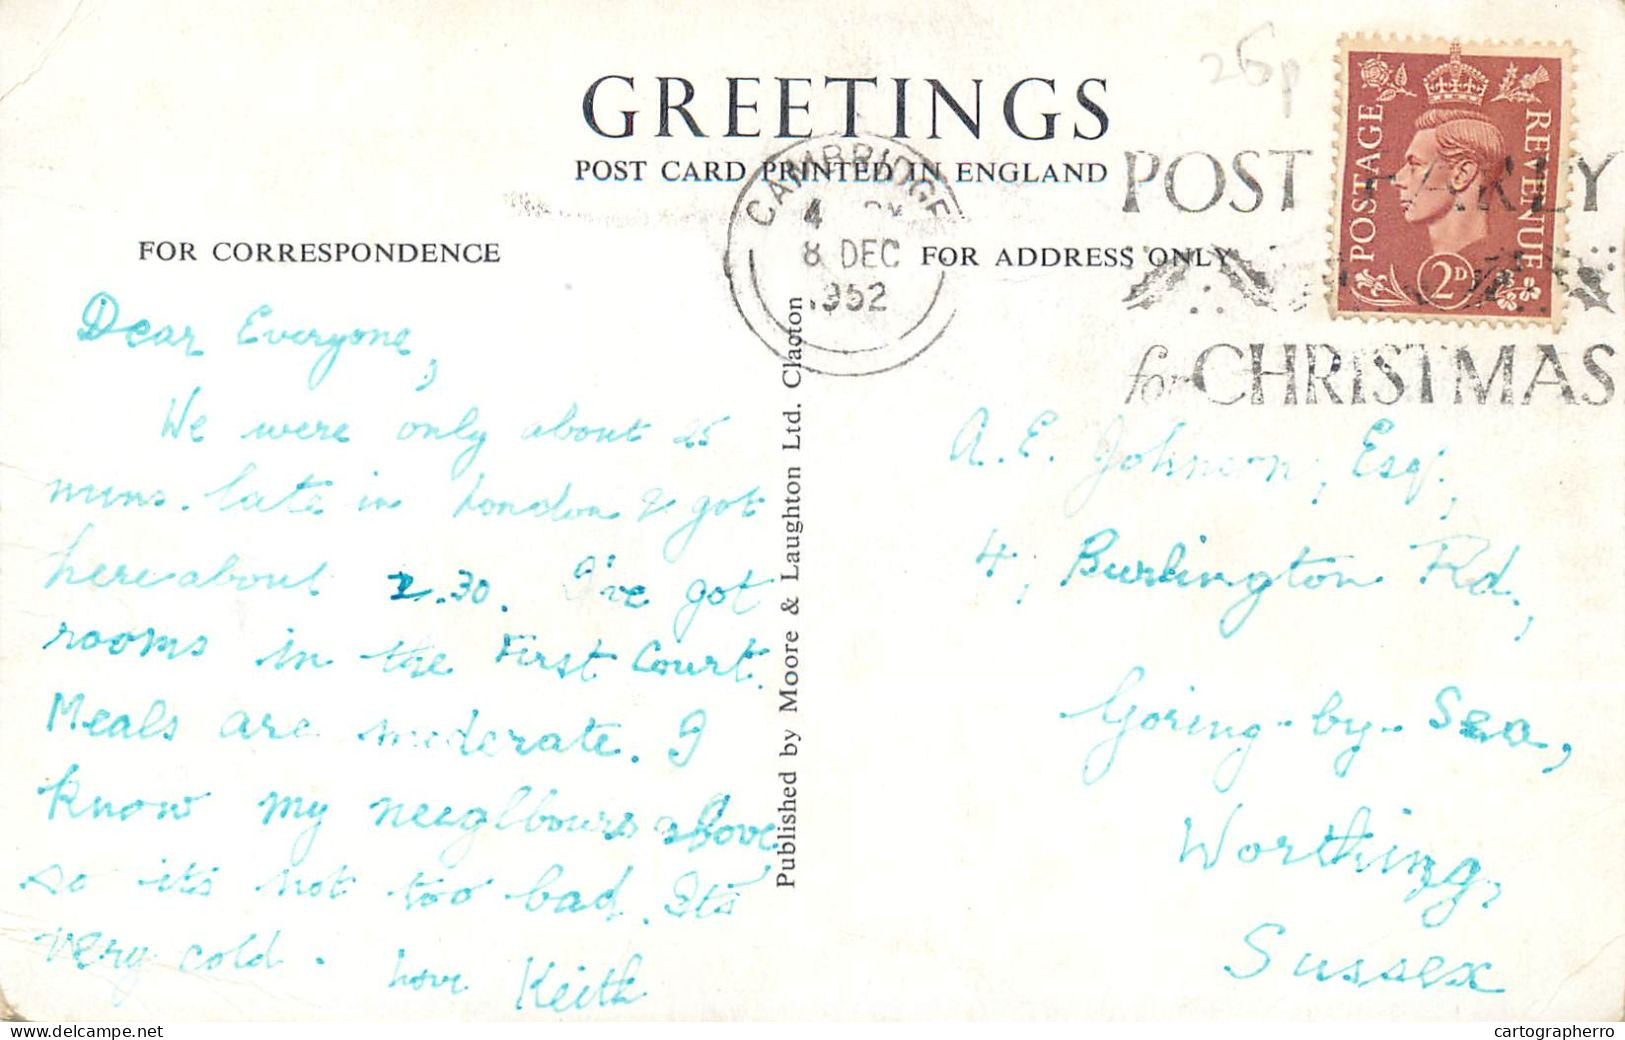 GREETINGS
POST CARD PRINTED IN ENGLAND
26p
POSTAGE
REVENUE
2D
CAMBRIDGE
4
8 DEC
1952
POST EARLY
for CHRISTMAS
FOR CORRESPONDENCE
FOR ADDRESS ONLY
Dear Everyone,
We were only about 25
mins. late in London & got
here about 2.30. I've got
rooms in the First Court.
Meals are moderate. I
know my neighbours above
so its not too bad. Its
very cold. Love Keith
Published by Moore & Laughton Ltd. Clacton
A. E. Johnson, Esq.,
4, Burlington Rd.,
Goring-by-Sea,
Worthing,
Sussex
delcampe.net
cartographerro